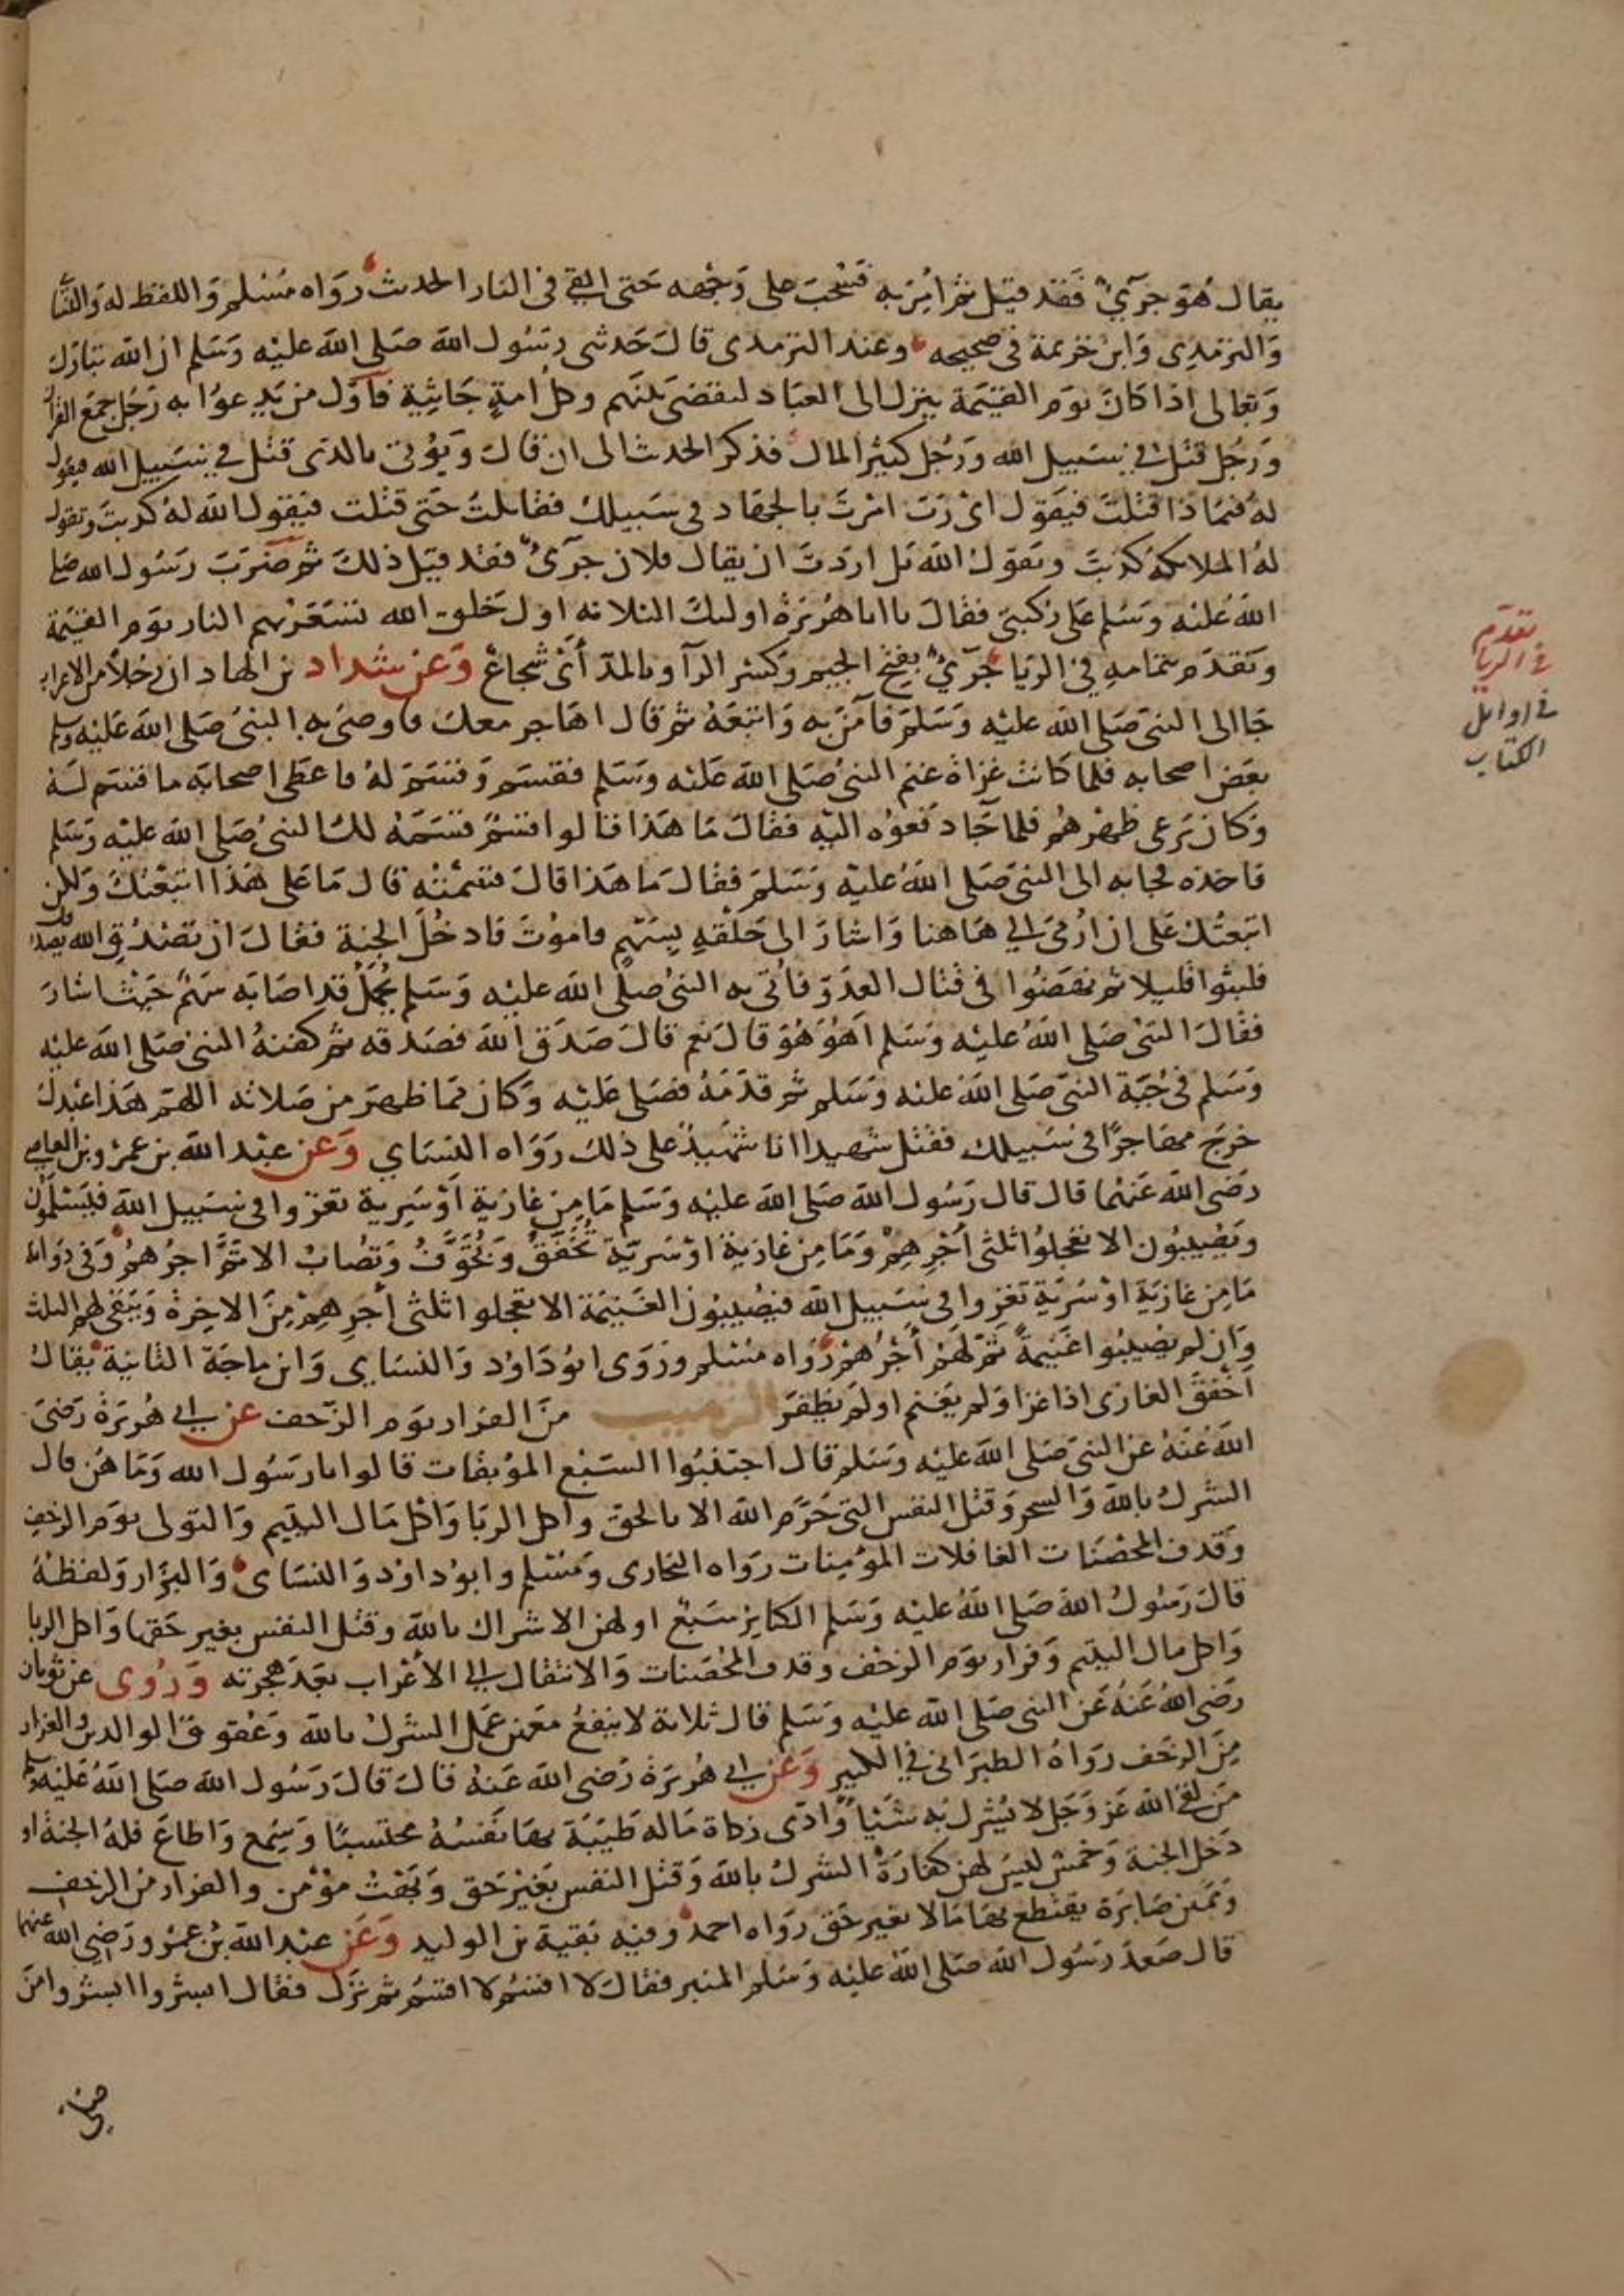 يقال هُوَ جرَيٌ فَقَد قيل ثمَّ امِرَ به فسُحبَ على وَجهه حَتى القي فى النار الحديث رَوَاه مُسْلم وَاللفظ له وَالنَّسا
وَالترمذي وَابن خزيمة فى صحيحه وعند الترمذى قالَ حَدثنى رسُول الله صَلى الله عليْه وَسَلم ان الله تبارَك
وَتعالى اذا كانَ يوَم القيٰمَة ينزل الى العبَاد ليقضىَ بَينَهم وكل امةٍ جَاثِيَة فأوَّل من يَدعوُا به رَجُل جمعَ القرآن
وَرَجُل قتل في سَبيل الله وَرَجُل كثيْر المال فذكر الحديث الى ان قالَ وَيؤُتى بالذى قتل في سَبيل الله فيقول
لهُ فيمَا ذا قتلتَ فيَقوُل اىْ رَبّ امْرتَ بالجهَاد فى سَبيلك فقاتلتُ حَتى قتلت فيَقول الله لهُ كذبتَ وتقول
لهُ الملائكة كذبتَ ويَقوُل الله بَل اردَتَ ان يقال فلان جرَىٌ فقد قيَل ذلكَ ثم ضَرَبَ رَسُول الله صلى
اللهُ عَليْه وَسَلم على ركبتىَ فقالَ يا ابا هُرَيرَة اوليكَ الثلاثة اولُ خلق الله تُسَعَّرُ بهم النار يوَم القيٰمَة
وَتقدّم بتمَامهِ في الريا جَرَيٌ بفتح الجيم وَكسْر الرآ وبالمدّ أىْ شجاعٌ وَعن شداد بن الهاد ان رَجلاً من الاعراب
جَا الى النبىّ صَلى الله عليْه وَسَلمَ فآمَنَ به وَاتبَعَهُ ثم قال اهَاجر معكَ فاوصىَ به النبىُ صَلى اللهُ عَليْه وسلم
بعَضَ اصحابه فلما كانت غزَاة غنم النبىُ صَلى الله عَليْه وسَلم فقسَم وَقسَمَ لهُ فاعطَى اصحابَه ما قسَم لهُ
وَكان يَرعى ظهْرهمُ فلما جَا دَفعوُه اليْه فقالَ مَا هَذا قالوا قسْمٌ قسَمَهُ لكَ النبىُ صَلى الله عليْه وَسَلم
فاخذه فجا به الى النبىَ صَلى اللهُ عليْه وَسَلمَ فقالَ مَا هَذا قالَ قسَمْتُه قال مَا على هَذا اتبَعْتكَ وَلكن
اتبعتُك على ان ارُمَى الى هَاهنا وَاشارَ الى حَلقهِ بسَهْم فاموُتَ فادخُلَ الجنة فقالَ ان تصْدُق الله يصدقك
فلبثوا قليلا ثم نهضَوُا فى قتال العدَوّ فأتى به النبىُ صَلى الله عليْه وَسَلم يُحْمَل قد اصَابَه سَهْم حَيْث اشارَ
فقالَ النبىُ صَلى اللهُ عليْه وَسَلم اَهُوَ هُوَ قالَ نعم قالَ صَدَق اللهَ فصَدقه ثم كفنهُ النبىُ صَلى الله عليْه
وَسَلم فى جُبة النبىّ صَلى الله عليْه وَسَلم ثم قدَّمَهُ فصَلى عَليْه وَكان مما ظهرَ من صَلاته اللهمَ هَذا عَبدكَ
خرجَ مهاجرًا فى سَبيلك فقتل شهيدا انا شهيْدٌ على ذلكَ رَوَاه النسَاي وَعن عبْد الله بن عمْرو بن العاصى
رَضى الله عَنهُما قال قال رَسُول الله صَلى الله عليْه وَسَلم مَا من غازيَة اَوْ سَريةٍ تغزوا فى سَبيل الله فيسْلَمُون
وَيُصيبُون الا تعَجلوُا ثلثى أجْرِهِمْ وَمَا مِن غازيَة اوْ سَريّة تخفقُ وَتخَوَّفُ وَتصَابُ الا تمَّ اجرُهمُ وَفى رِوَاية
مَا مِن غازيَة اوْ سَريَّة تغزوا فى سَبيل الله فيصُيبوُن الغَنيَمة الا تعجلوا ثلثى أجرِهِمْ مِنَ الآخِرة وَيَبقى لهم الثلث
وَان لم يصُيبُوا غنيمةً تمّ لهُمْ أجْرُهُمْ رَوَاه مسْلم وَرَوَى ابوُدَاوُد وَالنسَاي وَابن ماجَة الثانيَة يقالُ
اَخفقَ الغازى اذا غزا وَلم يغَنم اولم يَظفرَ الترهيب منَ الفرار يوَم الزحف عن ابي هُرَيرَة رَضىَ
الله عُنهُ عن النبى صَلى الله عليْه وَسَلم قال اجتنبُوا السَبْع الموُبقات قالوا يا رَسُول الله وَمَا هُن قال
الشرك بالله وَالسحر وَقتل النفس التى حَرَّم الله الا بالحق وَاكل الربا وَاكل مَال اليتيم وَالتولى يوَم الزحفِ
وَقذف المحصَنات الغافلات الموُمِنات رَوَاه البخارى وَمسْلم وابوُ داوُد وَالنسَاى وَالبزّار وَلفظهُ
قالَ رَسُولُ الله صَلى اللهُ عليْه وَسَلم الكبايرُ سَبْع اولهن الاشراك بالله وقتل النفس بغير حَقها وَاكل الربا
وَاكل مال اليتيم وَفرار يوَم الزحْف وقذف المحْصَنات وَالانتقال الي الأعْراب بعَد هجرته وَرُوى عن ثوبان
رَضى اللهُ عَنهُ عَن النبى صَلى الله عليْه وَسَلم قال ثلاثة لا ينفعُ معَهن عمَل الشرك بالله وَعَقوق الوالدين والفرار
مِنَ الزحف رَوَاهُ الطبرَانى فى الكبير وَعَن ابي هُرَيرَة رَضى الله عَنهُ قالَ قالَ رَسُول الله صَلى اللهُ عَليْه وسلم
مَن لقى الله عَز وَجَل لا يُشرك به شَيْئا وَّادى زكاة مَاله طَيّبَة بهَا نَفسُهُ محتسبًا وَسَمِع وَاطاعَ فلهُ الجنة او
دَخل الجنة وَخمسْ ليسَ لهن كفارَة الشرك بالله وَقتل النفس بغَيْر حَق وَبَهْتُ موْمن والفرار من الزحفِ
وَيَمَينُ صَابرَة يقتطع بهَا مَالا بغير حَق رَوَاه احمد وفيه بَقية بن الوليد وَعَن عبْد الله بْن عمْرو رَضي الله عنهما
قال صَعدَ رَسُول الله صَلى اللهُ عليْه وَسَلم المنبر فقالَ لا اقسُم لا اقسُم ثم نزَل فقال ابشروا ابشروا منَ
تقدّم
في الريا
في اوايل
الكتاب
صلى